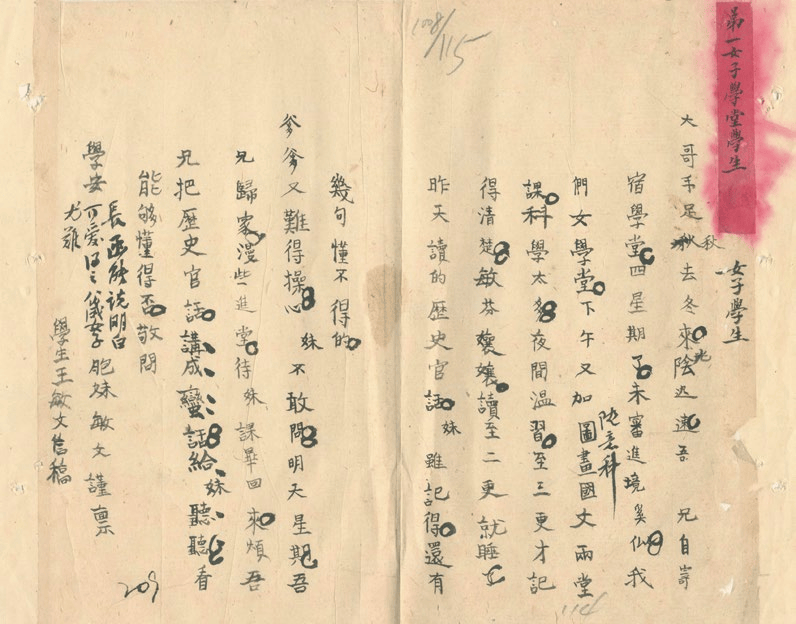 弟一女子學堂學生
女子學生
1008/115
大哥手足 秋去冬來陰 速吾 兄自寄
秋
兆
宿學堂四星期了未審進境奚似我
們女學堂下午又加圖畫國文兩堂
隨意科
課科學太多夜間溫習至三更才記
得清楚敏芬孃孃讀至二更就睡了
昨天讀的歷史官話妹雖記得還有
幾句懂不得的
爹爹又難得操心妹不敢問明天星期吾
兄歸家漫些進堂待妹課畢回來煩吾
兄把歷史官話講成蠻話給妹聽聽看
能够懂得否敬問
學安 胞妹敏文謹禀
長函能說明白
可愛 女子
尤難
學生王敏文信稿
209
114